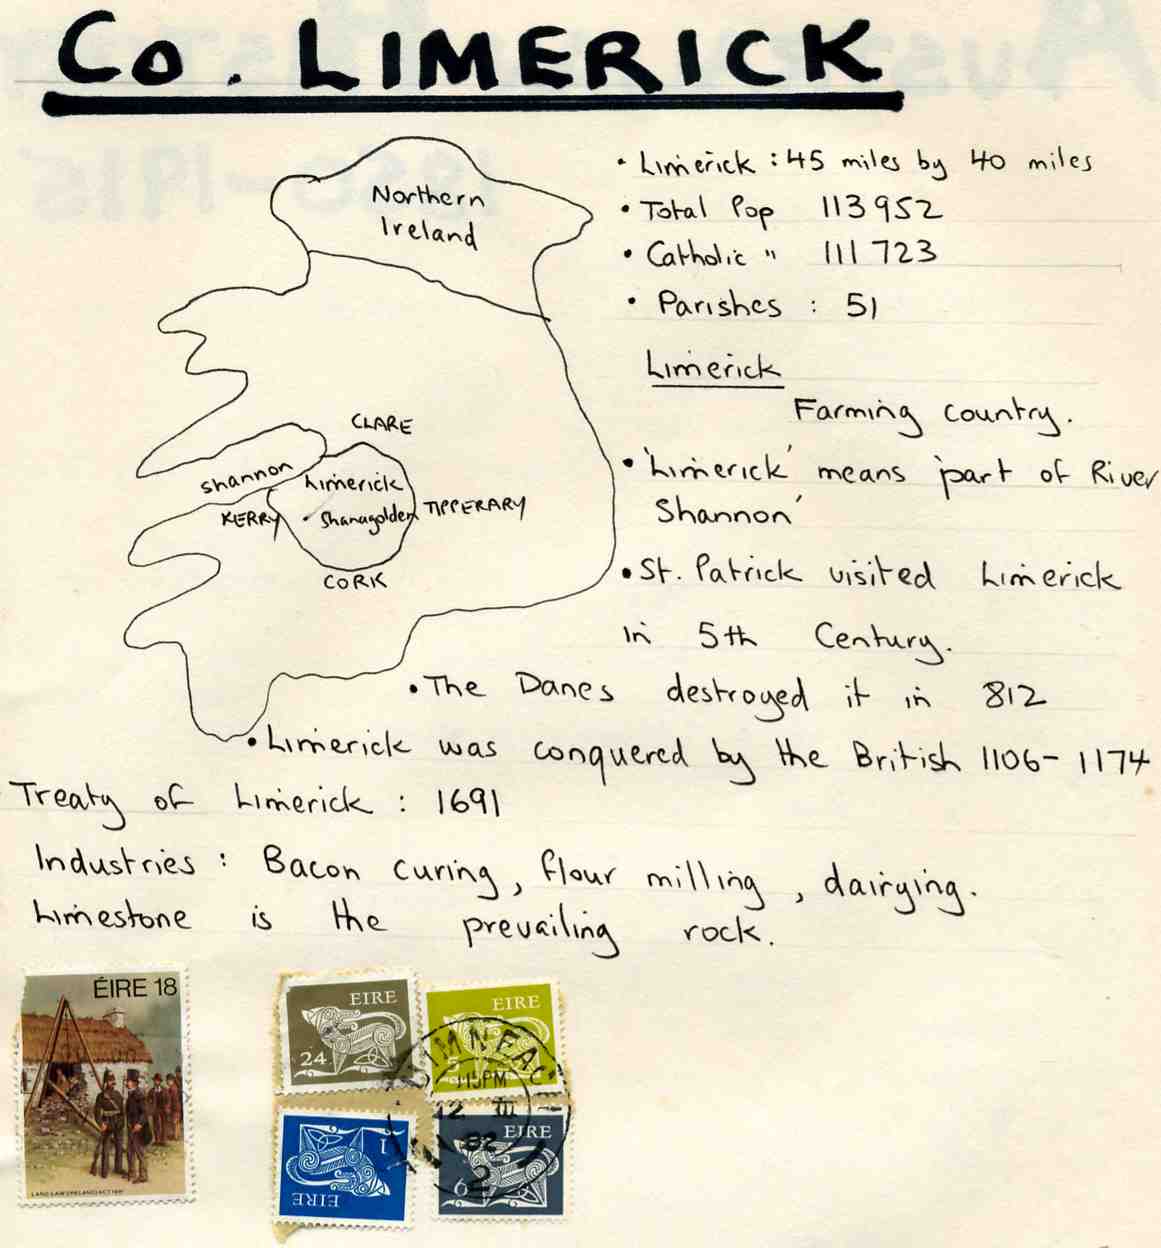 Co. LIMERICK
Northern
Ireland
CLARE
Shannon
Limerick
KERRY
Shanagolden
TIPPERARY
CORK
• Limerick : 45 miles by 40 miles
• Total Pop 113952
• Catholic " 111723
• Parishes : 51
Limerick
Farming country.
• 'Limerick' means 'part of River
Shannon'
• St. Patrick visited Limerick
in 5th Century.
• The Danes destroyed it in 812
• Limerick was conquered by the British 1106-1174
Treaty of Limerick : 1691
Industries : Bacon curing, flour milling, dairying.
Limestone is the prevailing rock.
ÉIRE 18
LAND LAW (IRELAND) ACT 1881
EIRE
24
EIRE
LUIMNEACH
1 15PM
12 III
82
2
1
EIRE
EIRE
9